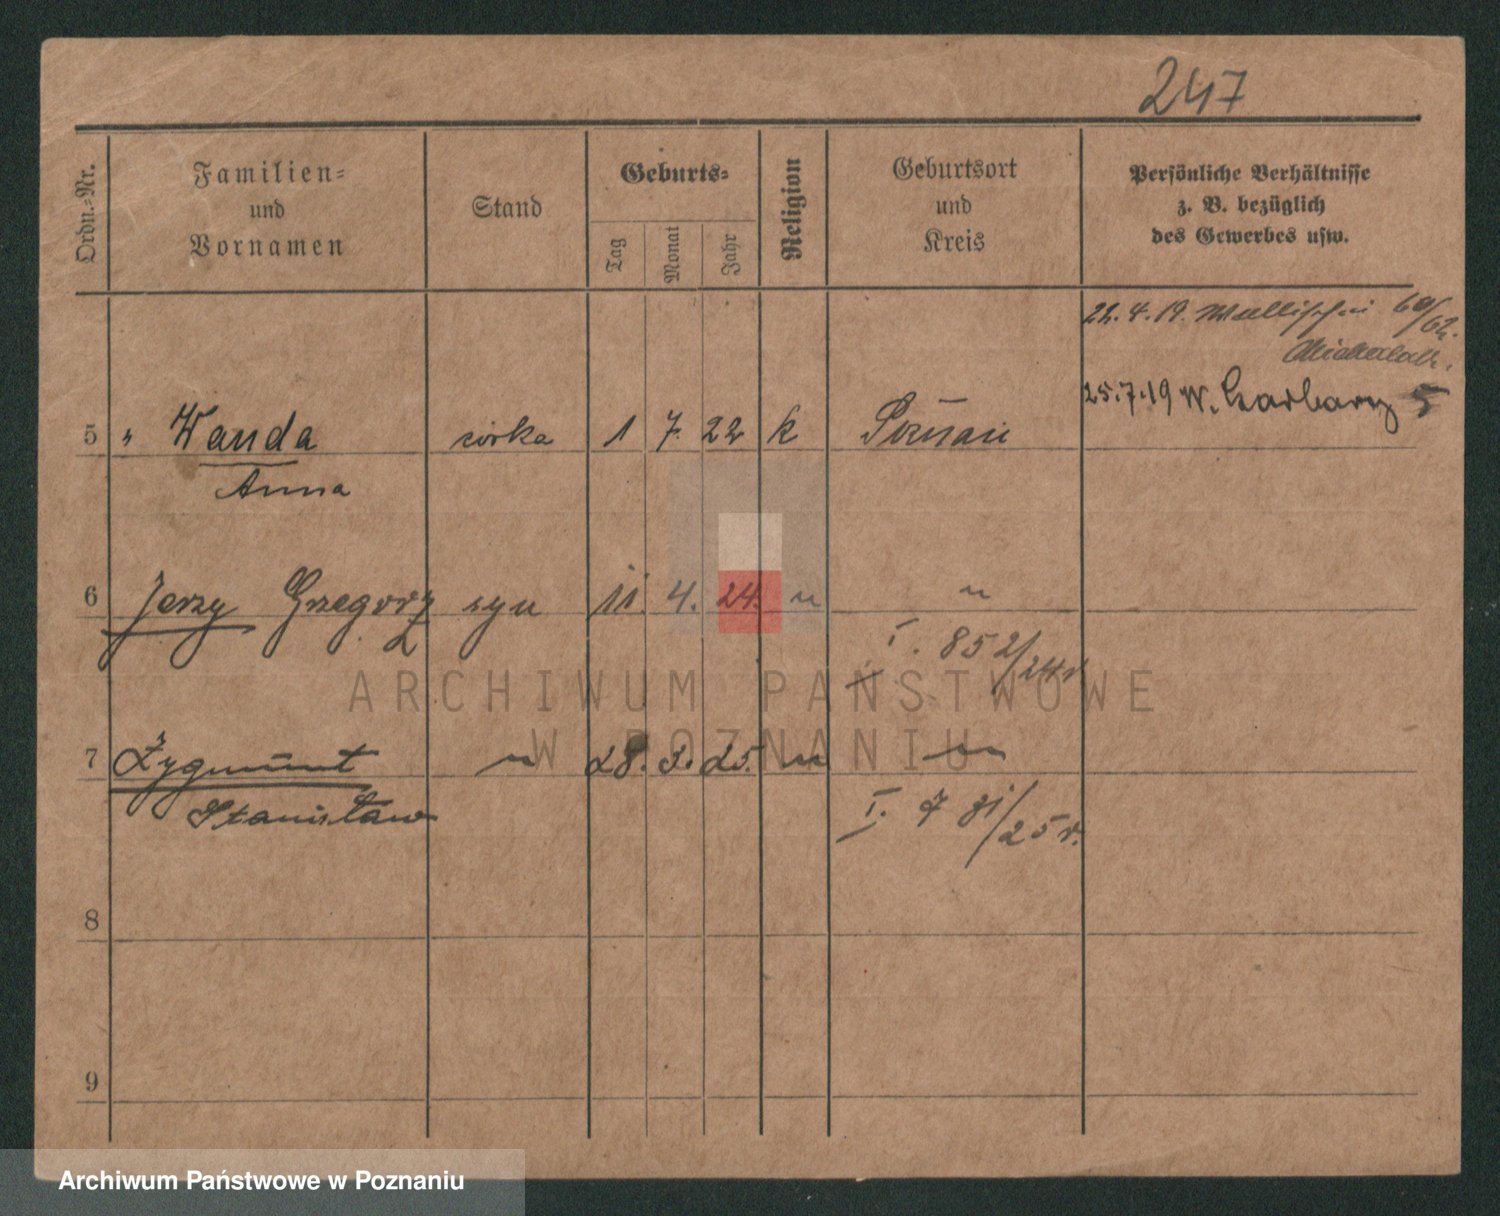 247
Ordn.-Nr.
Familien-
und
Vornamen
Stand
Geburts-
Tag
Monat
Jahr
Religion
Geburtsort
und
Kreis
Persönliche Verhältnisse
z. B. bezüglich
des Gewerbes usw.
22.4.19. Wallischei 60/62.
25.7.19 W. Garbary 5
5 " Wanda córka 1 7. 22 k Poznań
Anna
6 Jerzy Grzegorz syn 11. 4. 24. " "
I. 852/24 r.
7 Zygmunt " 28. 3. 25. " "
Stanisław
I. 7 /25 r.
8
9
ARCHIWUM PAŃSTWOWE
W POZNANIU
Archiwum Państwowe w Poznaniu